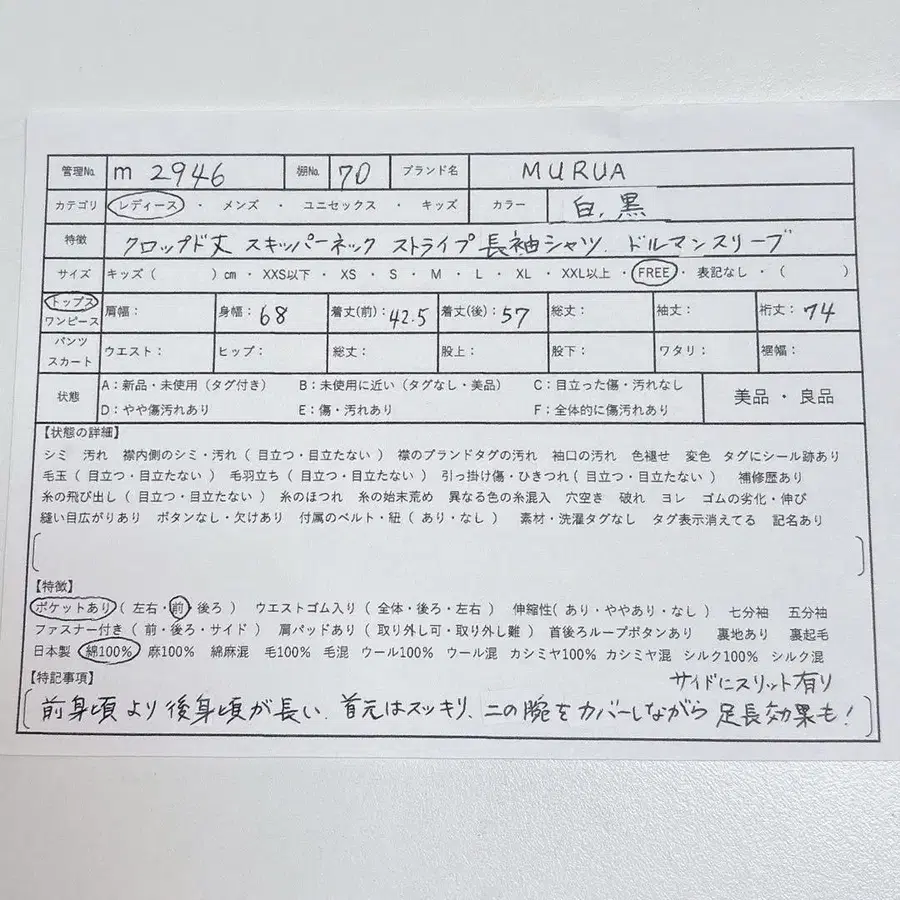 管理No. m 2946 棚No. 70 ブランド名 MURUA
カテゴリ レディース ・ メンズ ・ ユニセックス ・ キッズ カラー 白、黒
特徴 クロップド丈 スキッパーネック ストライプ長袖シャツ、ドルマンスリーブ
サイズ キッズ ( ) cm ・ XXS以下 ・ XS ・ S ・ M ・ L ・ XL ・ XXL以上 ・ FREE ・ 表記なし ・ ( )
トップス ワンピース 肩幅: 身幅: 68 着丈(前): 42.5 着丈(後): 57 総丈: 袖丈: 裄丈: 74
パンツ スカート ウエスト: ヒップ: 総丈: 股上: 股下: ワタリ: 裾幅:
状態 A:新品・未使用 (タグ付き) B:未使用に近い (タグなし・美品) C:目立った傷・汚れなし 美品 ・ 良品
D:やや傷汚れあり E:傷・汚れあり F:全体的に傷汚れあり
【状態の詳細】
シミ 汚れ 襟内側のシミ・汚れ ( 目立つ・目立たない ) 襟のブランドタグの汚れ 袖口の汚れ 色褪せ 変色 タグにシール跡あり
毛玉 ( 目立つ・目立たない ) 毛羽立ち ( 目立つ・目立たない ) 引っ掛け傷・ひきつれ ( 目立つ・目立たない ) 補修歴あり
糸の飛び出し ( 目立つ・目立たない ) 糸のほつれ 糸の始末荒め 異なる色の糸混入 穴空き 破れ ヨレ ゴムの劣化・伸び
縫い目広がりあり ボタンなし・欠けあり 付属のベルト・紐 ( あり・なし ) 素材・洗濯タグなし タグ表示消えてる 記名あり
【特徴】
ポケットあり ( 左右・前・後ろ ) ウエストゴム入り ( 全体・後ろ・左右 ) 伸縮性 ( あり・ややあり・なし ) 七分袖 五分袖
ファスナー付き ( 前・後ろ・サイド ) 肩パッドあり ( 取り外し可・取り外し難 ) 首後ろループボタンあり 裏地あり 裏起毛
日本製 綿100% 麻100% 綿麻混 毛100% 毛混 ウール100% ウール混 カシミヤ100% カシミヤ混 シルク100% シルク混
【特記事項】 サイドにスリット有り
前身頃より後身頃が長い、首元はスッキリ、二の腕をカバーしながら足長効果も!